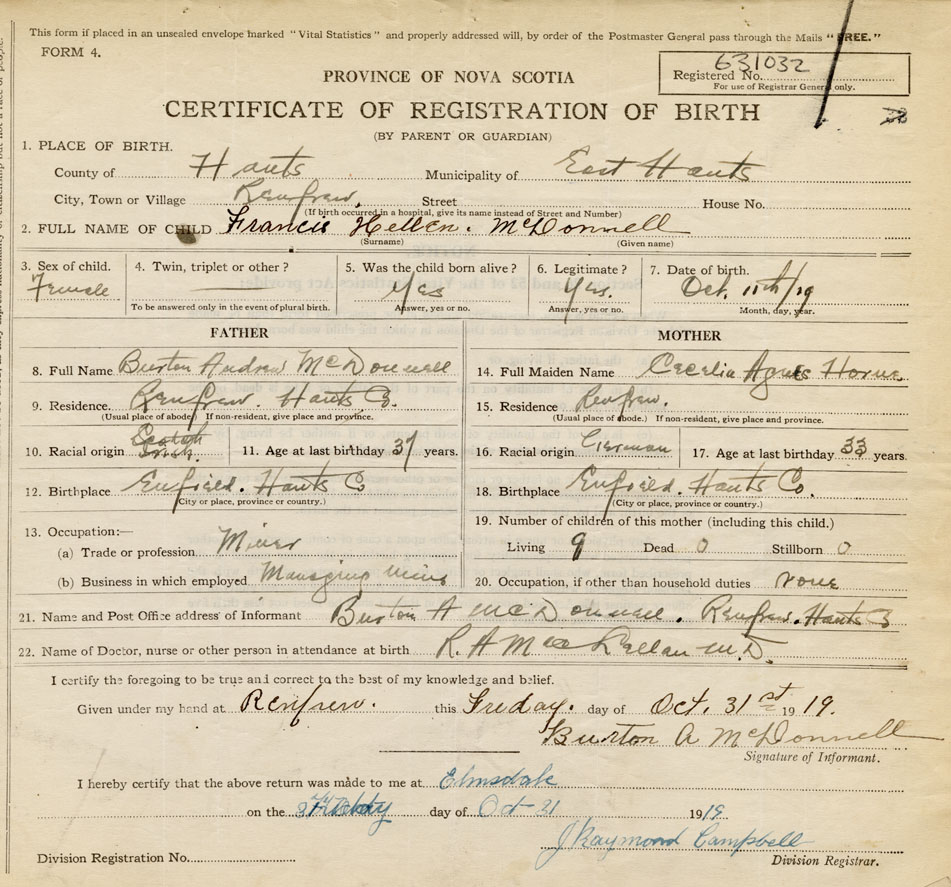 This form if placed in an unsealed envelope marked "Vital Statistics" and properly addressed will, by order of the Postmaster General pass through the Mails "FREE."
FORM 4.
631032
Registered No.
For use of Registrar General only.
PROVINCE OF NOVA SCOTIA
CERTIFICATE OF REGISTRATION OF BIRTH
(BY PARENT OR GUARDIAN)
1. PLACE OF BIRTH.
County of Hants Municipality of East Hants
City, Town or Village Renfrew. Street House No.
(If birth occurred in a hospital, give its name instead of Street and Number)
2. FULL NAME OF CHILD Francis Hellen. McDonnell
(Surname) (Given name)
3. Sex of child. 4. Twin, triplet or other? 5. Was the child born alive? 6. Legitimate? 7. Date of birth.
Female Yes Yes. Oct. 11th/19
To be answered only in the event of plural birth. Answer, yes or no. Answer, yes or no. Month, day, year.
FATHER MOTHER
8. Full Name Burton Andrew McDonnell 14. Full Maiden Name Cecelia Agnes Horne
9. Residence. Renfrew. Hants Co. 15. Residence Renfrew.
(Usual place of abode) If non-resident, give place and province. (Usual place of abode.) If non-resident, give place and province.
10. Racial origin Scotch 11. Age at last birthday 37 years. 16. Racial origin German 17. Age at last birthday 33 years.
12. Birthplace Enfield. Hants Co 18. Birthplace Enfield. Hants Co.
(City or place, province or country.) (City or place, province or country.)
13. Occupation:— 19. Number of children of this mother (including this child.)
(a) Trade or profession Miner Living 9 Dead 0 Stillborn 0
(b) Business in which employed Managing mine 20. Occupation, if other than household duties none
21. Name and Post Office address of Informant Burton A McDonnell. Renfrew. Hants Co
22. Name of Doctor, nurse or other person in attendance at birth R. A MacLellan M.D.
I certify the foregoing to be true and correct to the best of my knowledge and belief.
Given under my hand at Renfrew. this Friday. day of Oct. 31st 1919.
Burton A McDonnell
Signature of Informant.
I hereby certify that the above return was made to me at Elmsdale
on the day of Oct 31 1919
J Raymond Campbell
Division Registration No. Division Registrar.